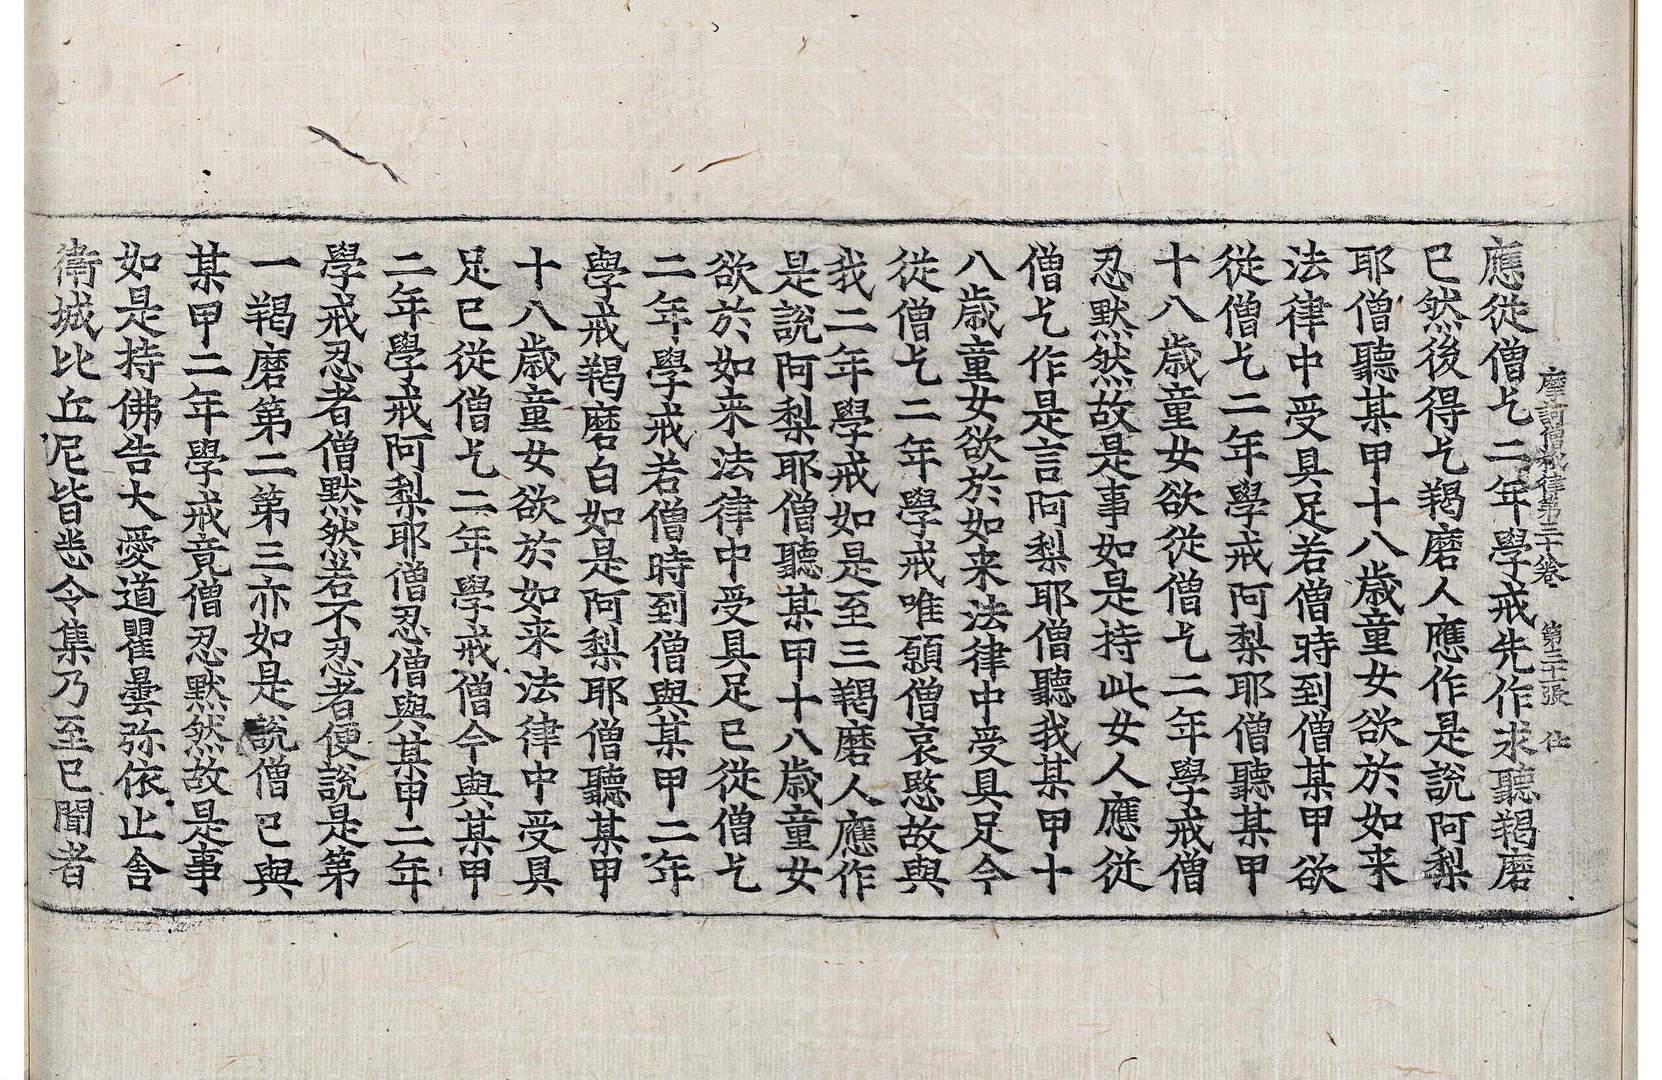 摩訶僧祇律第三十卷 第二十張 仕
應從僧乞二年學戒先作求聽羯磨
已然後得乞羯磨人應作是說阿梨
耶僧聽某甲十八歲童女欲於如来
法律中受具足若僧時到僧某甲欲
從僧乞二年學戒阿梨耶僧聽某甲
十八歲童女欲從僧乞二年學戒僧
忍默然故是事如是持此女人應從
僧乞作是言阿梨耶僧聽我某甲十
八歲童女欲於如来法律中受具足今
從僧乞二年學戒唯願僧哀愍故與
我二年學戒如是至三羯磨人應作
是說阿梨耶僧聽某甲十八歲童女
欲於如来法律中受具足已從僧乞
二年學戒若僧時到僧與某甲二年
學戒羯磨白如是阿梨耶僧聽某甲
十八歲童女欲於如来法律中受具
足已從僧乞二年學戒僧今與某甲
二年學戒阿梨耶僧忍僧與某甲二年
學戒忍者僧默然若不忍者便說是第
一羯磨第二第三亦如是說僧已與
某甲二年學戒竟僧忍默然故是事
如是持佛告大愛道瞿曇弥依止舍
衛城比丘尼皆悉令集乃至已聞者